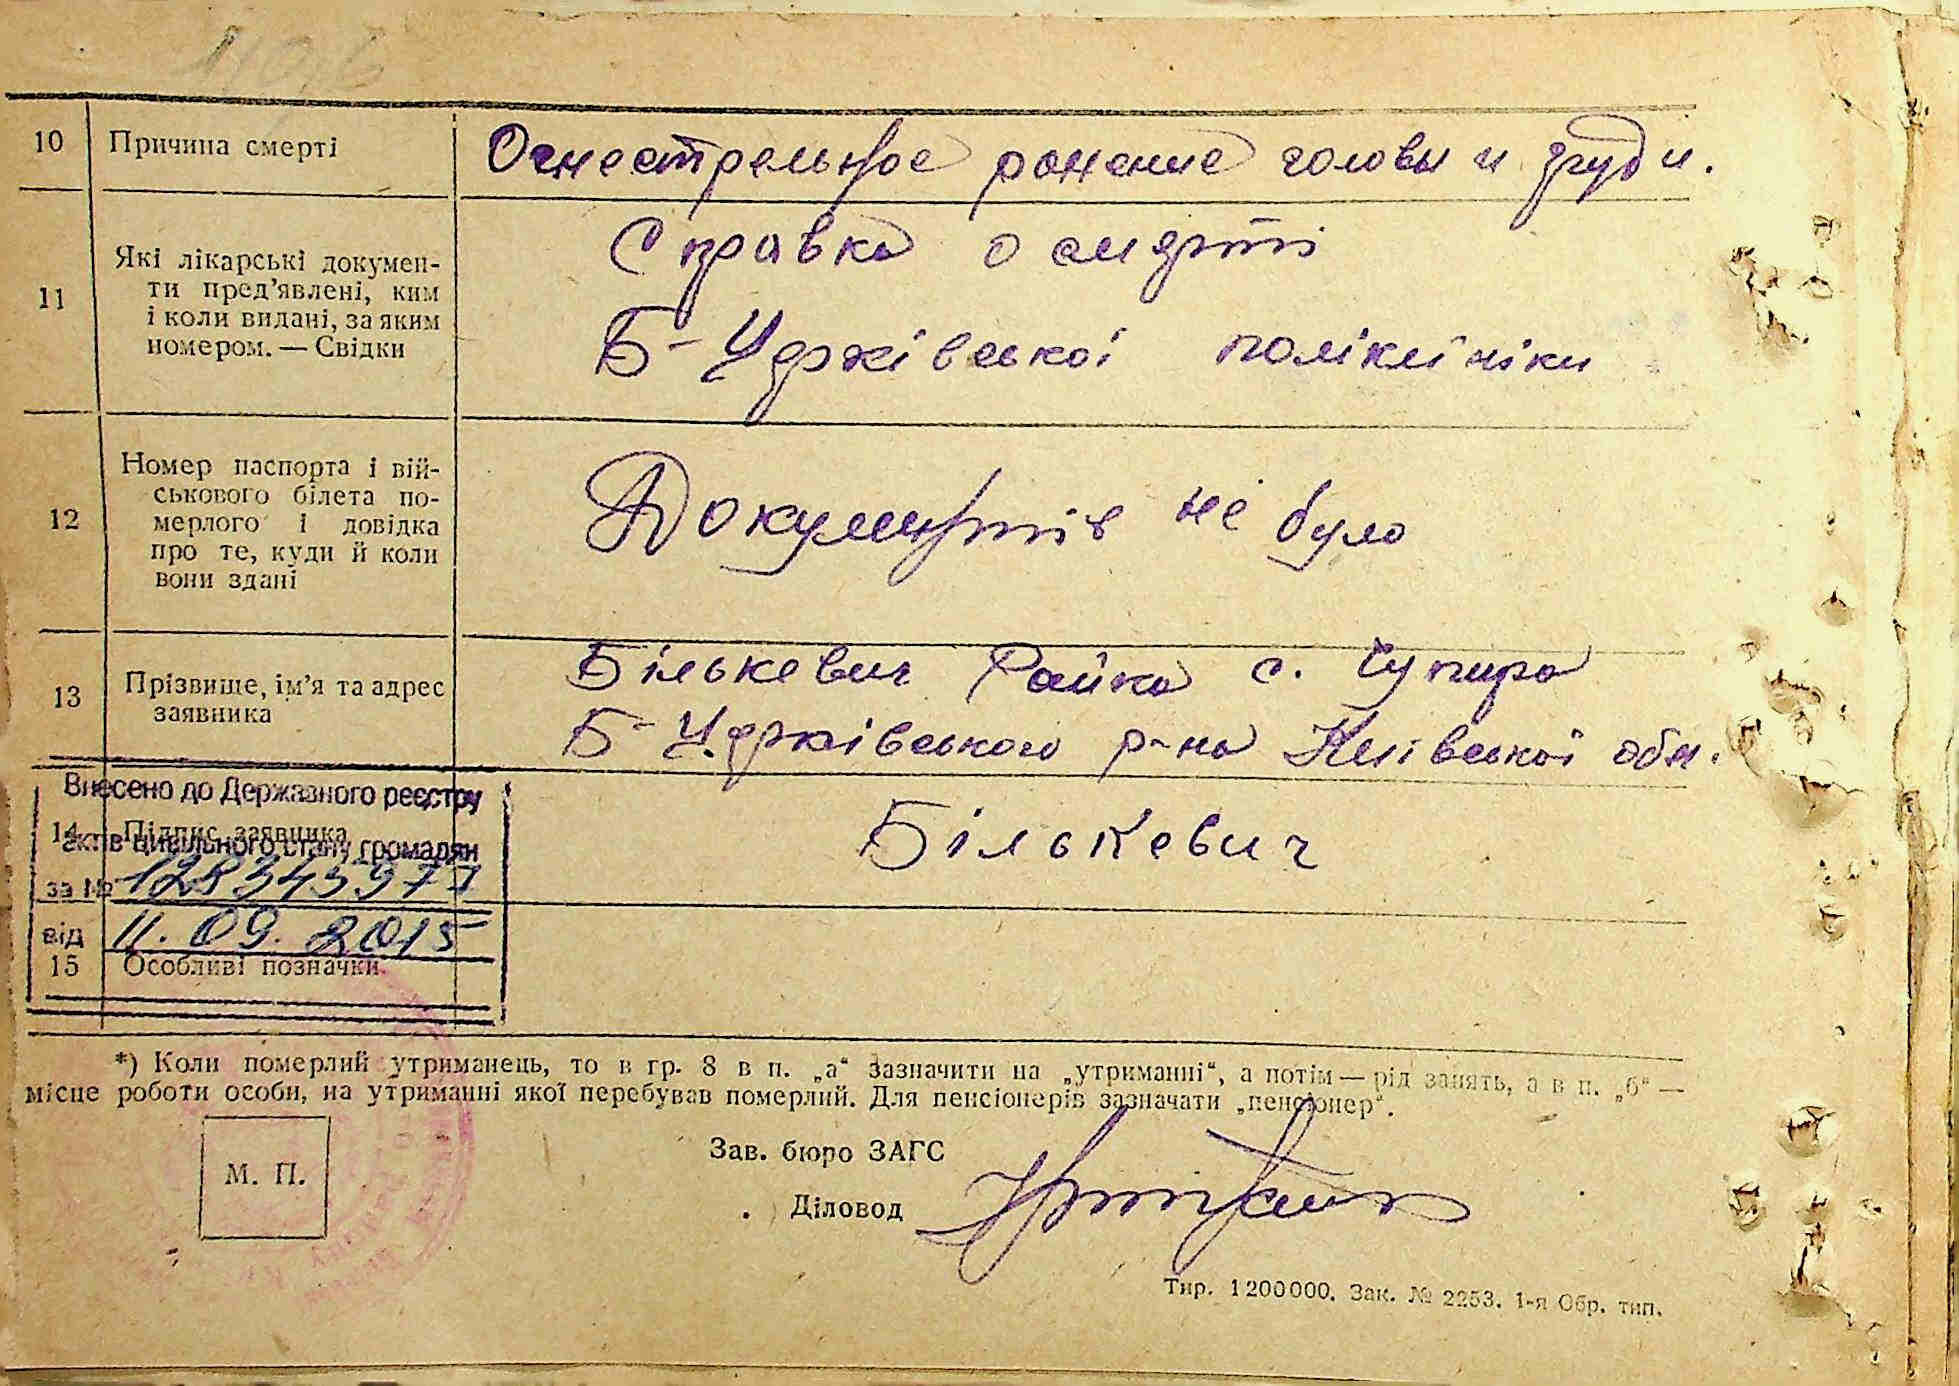 10 Причина смерті Огнестрельное ранение головы и груди.
11 Які лікарські докумен-
ти пред’явлені, ким
і коли видані, за яким
номером. — Свідки
Справка о смерті
Б-Церківської поліклініки
12 Номер паспорта і вій-
ськового білета по-
мерлого і довідка
про те, куди й коли
вони здані
Документів не було
13 Прізвище, ім’я та адрес
заявника
Бількевич Райка с. Чупира
Б-Церківського р-на Київської обл.
Внесено до Державного реєстру
14 Підпис заявника Бількевич
актів цивільного стану громадян
за №
від 11.09.2015
15 Особливі позначки
*) Коли померлий утриманець, то в гр. 8 в п. „а“ зазначити на „утриманні“, а потім — рід занять, а в п. „б“ —
місце роботи особи, на утриманні якої перебував померлий. Для пенсіонерів зазначати „пенсіонер“.
М. П.
Зав. бюро ЗАГС
Діловод
Тир. 1200000. Зак. № 2253. 1-я Обр. тип.